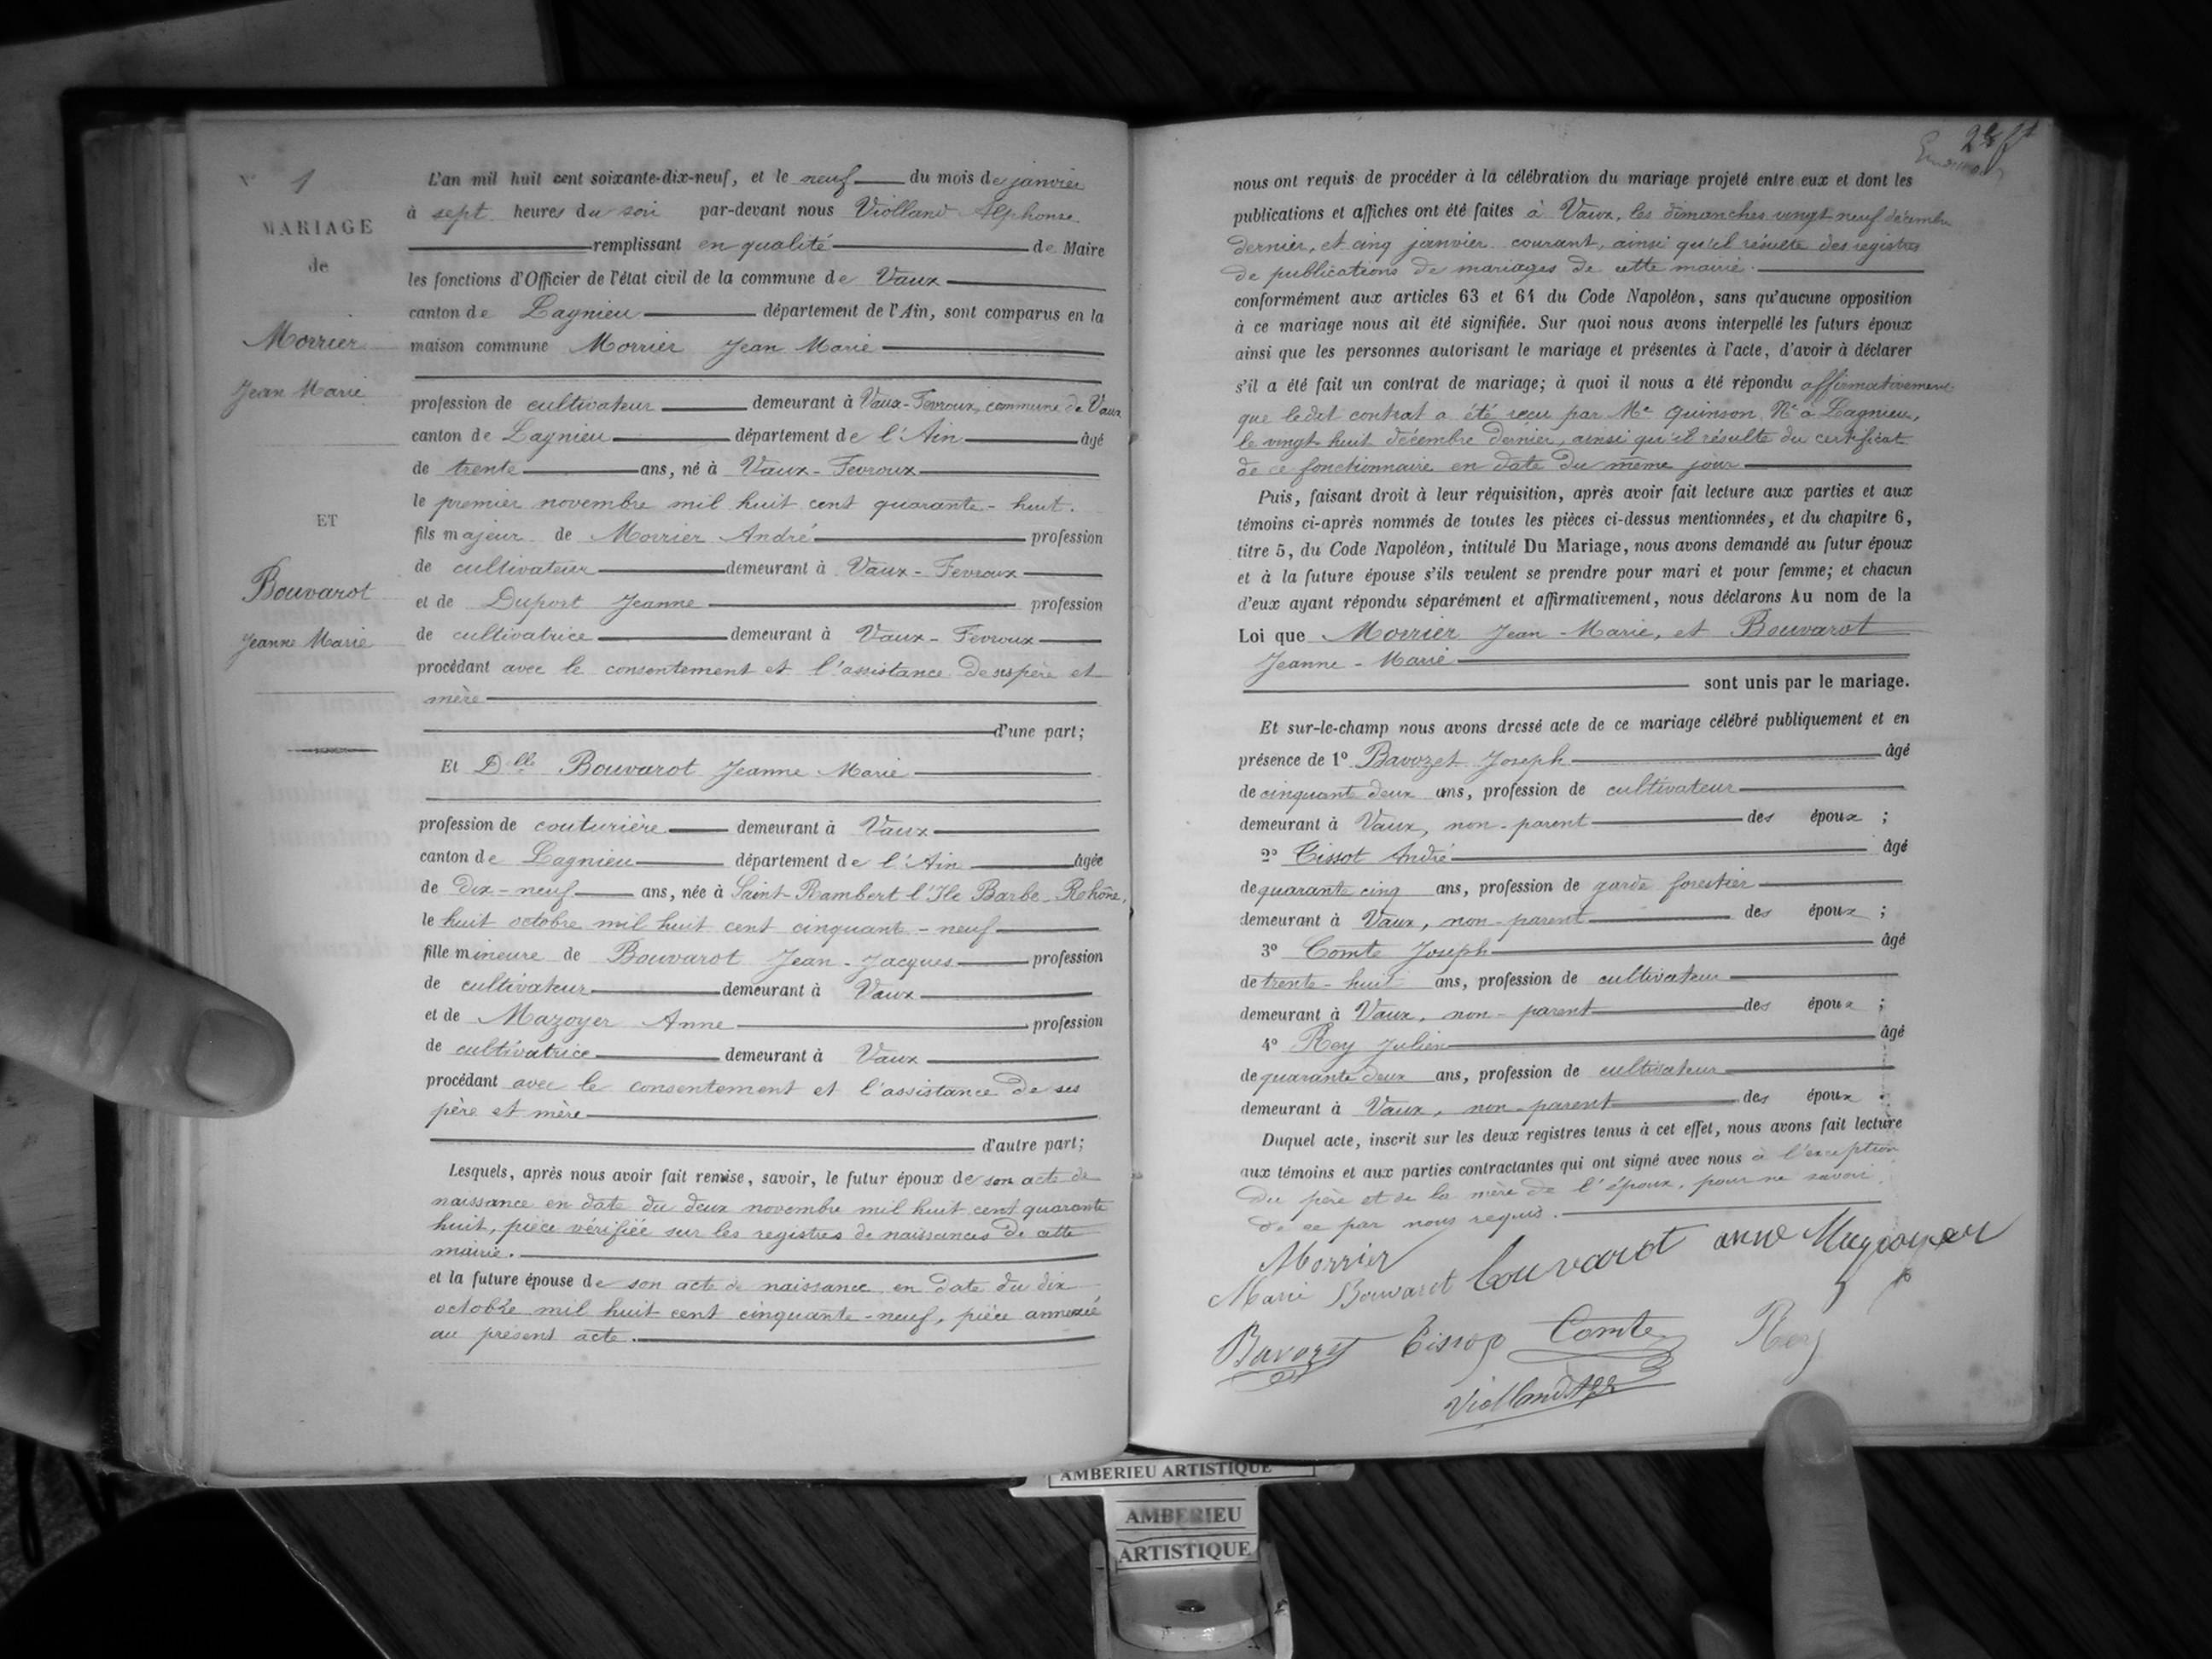 N° 1
MARIAGE
de
Morrier
Jean Marie
ET
Bouvarot
Jeanne Marie
L'an mil huit cent soixante-dix-neuf, et le neuf du mois de janvier
à sept heures du soir par-devant nous Violland Alphonse
remplissant en qualité de Maire
les fonctions d'Officier de l'état civil de la commune de Vaux
canton de Lagnieu département de l'Ain, sont comparus en la
maison commune Morrier Jean Marie
profession de cultivateur demeurant à Vaux-Fevroux, commune de Vaux
canton de Lagnieu département de l'Ain âgé
de trente ans, né à Vaux-Fevroux
le premier novembre mil huit cent quarante-huit.
fils majeur de Morrier André profession
de cultivateur demeurant à Vaux-Fevroux
et de Duport Jeanne profession
de cultivatrice demeurant à Vaux-Fevroux
procédant avec le consentement et l'assistance de ses père et
mère
d'une part;
Et Dlle Bouvarot Jeanne Marie
profession de couturière demeurant à Vaux
canton de Lagnieu département de l'Ain âgée
de dix-neuf ans, née à Saint-Rambert l'Ile Barbe-Rhône,
le huit octobre mil huit cent cinquant-neuf
fille mineure de Bouvarot Jean-Jacques profession
de cultivateur demeurant à Vaux
et de Mazoyer Anne profession
de cultivatrice demeurant à Vaux
procédant avec le consentement et l'assistance de ses
père et mère
d'autre part;
Lesquels, après nous avoir fait remise, savoir, le futur époux de son acte de
naissance en date du deux novembre mil huit cent quarante
huit, pièce vérifiée sur les registres de naissances de cette
mairie.
et la future épouse de son acte de naissance en date du dix
octobre mil huit cent cinquante-neuf, pièce annexée
au présent acte.
nous ont requis de procéder à la célébration du mariage projeté entre eux et dont les
publications et affiches ont été faites à Vaux, les dimanches vingt neuf décembre
dernier, et cinq janvier courant, ainsi qu'il résulte des registres
de publications de mariages de cette mairie.
conformément aux articles 63 et 64 du Code Napoléon, sans qu'aucune opposition
à ce mariage nous ait été signifiée. Sur quoi nous avons interpellé les futurs époux
ainsi que les personnes autorisant le mariage et présentes à l'acte, d'avoir à déclarer
s'il a été fait un contrat de mariage; à quoi il nous a été répondu affirmativement
que ledit contrat a été reçu par Me Quinson, Nre à Lagnieu,
le vingt-huit décembre dernier, ainsi qu'il résulte du certificat
de ce fonctionnaire en date du même jour
Puis, faisant droit à leur réquisition, après avoir fait lecture aux parties et aux
témoins ci-après nommés de toutes les pièces ci-dessus mentionnées, et du chapitre 6,
titre 5, du Code Napoléon, intitulé Du Mariage, nous avons demandé au futur époux
et à la future épouse s'ils veulent se prendre pour mari et pour femme; et chacun
d'eux ayant répondu séparément et affirmativement, nous déclarons Au nom de la
Loi que Morrier Jean-Marie, et Bouvarot
Jeanne-Marie
sont unis par le mariage.
Et sur-le-champ nous avons dressé acte de ce mariage célébré publiquement et en
présence de 1° Bavozet Joseph âgé
de cinquant deux ans, profession de cultivateur
demeurant à Vaux, non-parent des époux ;
2° Tissot André âgé
de quarante cinq ans, profession de garde forestier
demeurant à Vaux, non-parent des époux ;
3° Comte Joseph âgé
de trente-huit ans, profession de cultivateur
demeurant à Vaux, non-parent des époux ;
4° Rey Julien âgé
de quarante deux ans, profession de cultivateur
demeurant à Vaux, non-parent des époux .
Duquel acte, inscrit sur les deux registres tenus à cet effet, nous avons fait lecture
aux témoins et aux parties contractantes qui ont signé avec nous à l'exception
du père et de la mère de l'époux, pour ne savoir,
de ce par nous requis.
Morrier
Marie Bouvarot Bouvarot anne Mazoyer
Bavozet Tissot Comte Rey
Violland
AMBERIEU ARTISTIQUE
AMBERIEU
ARTISTIQUE